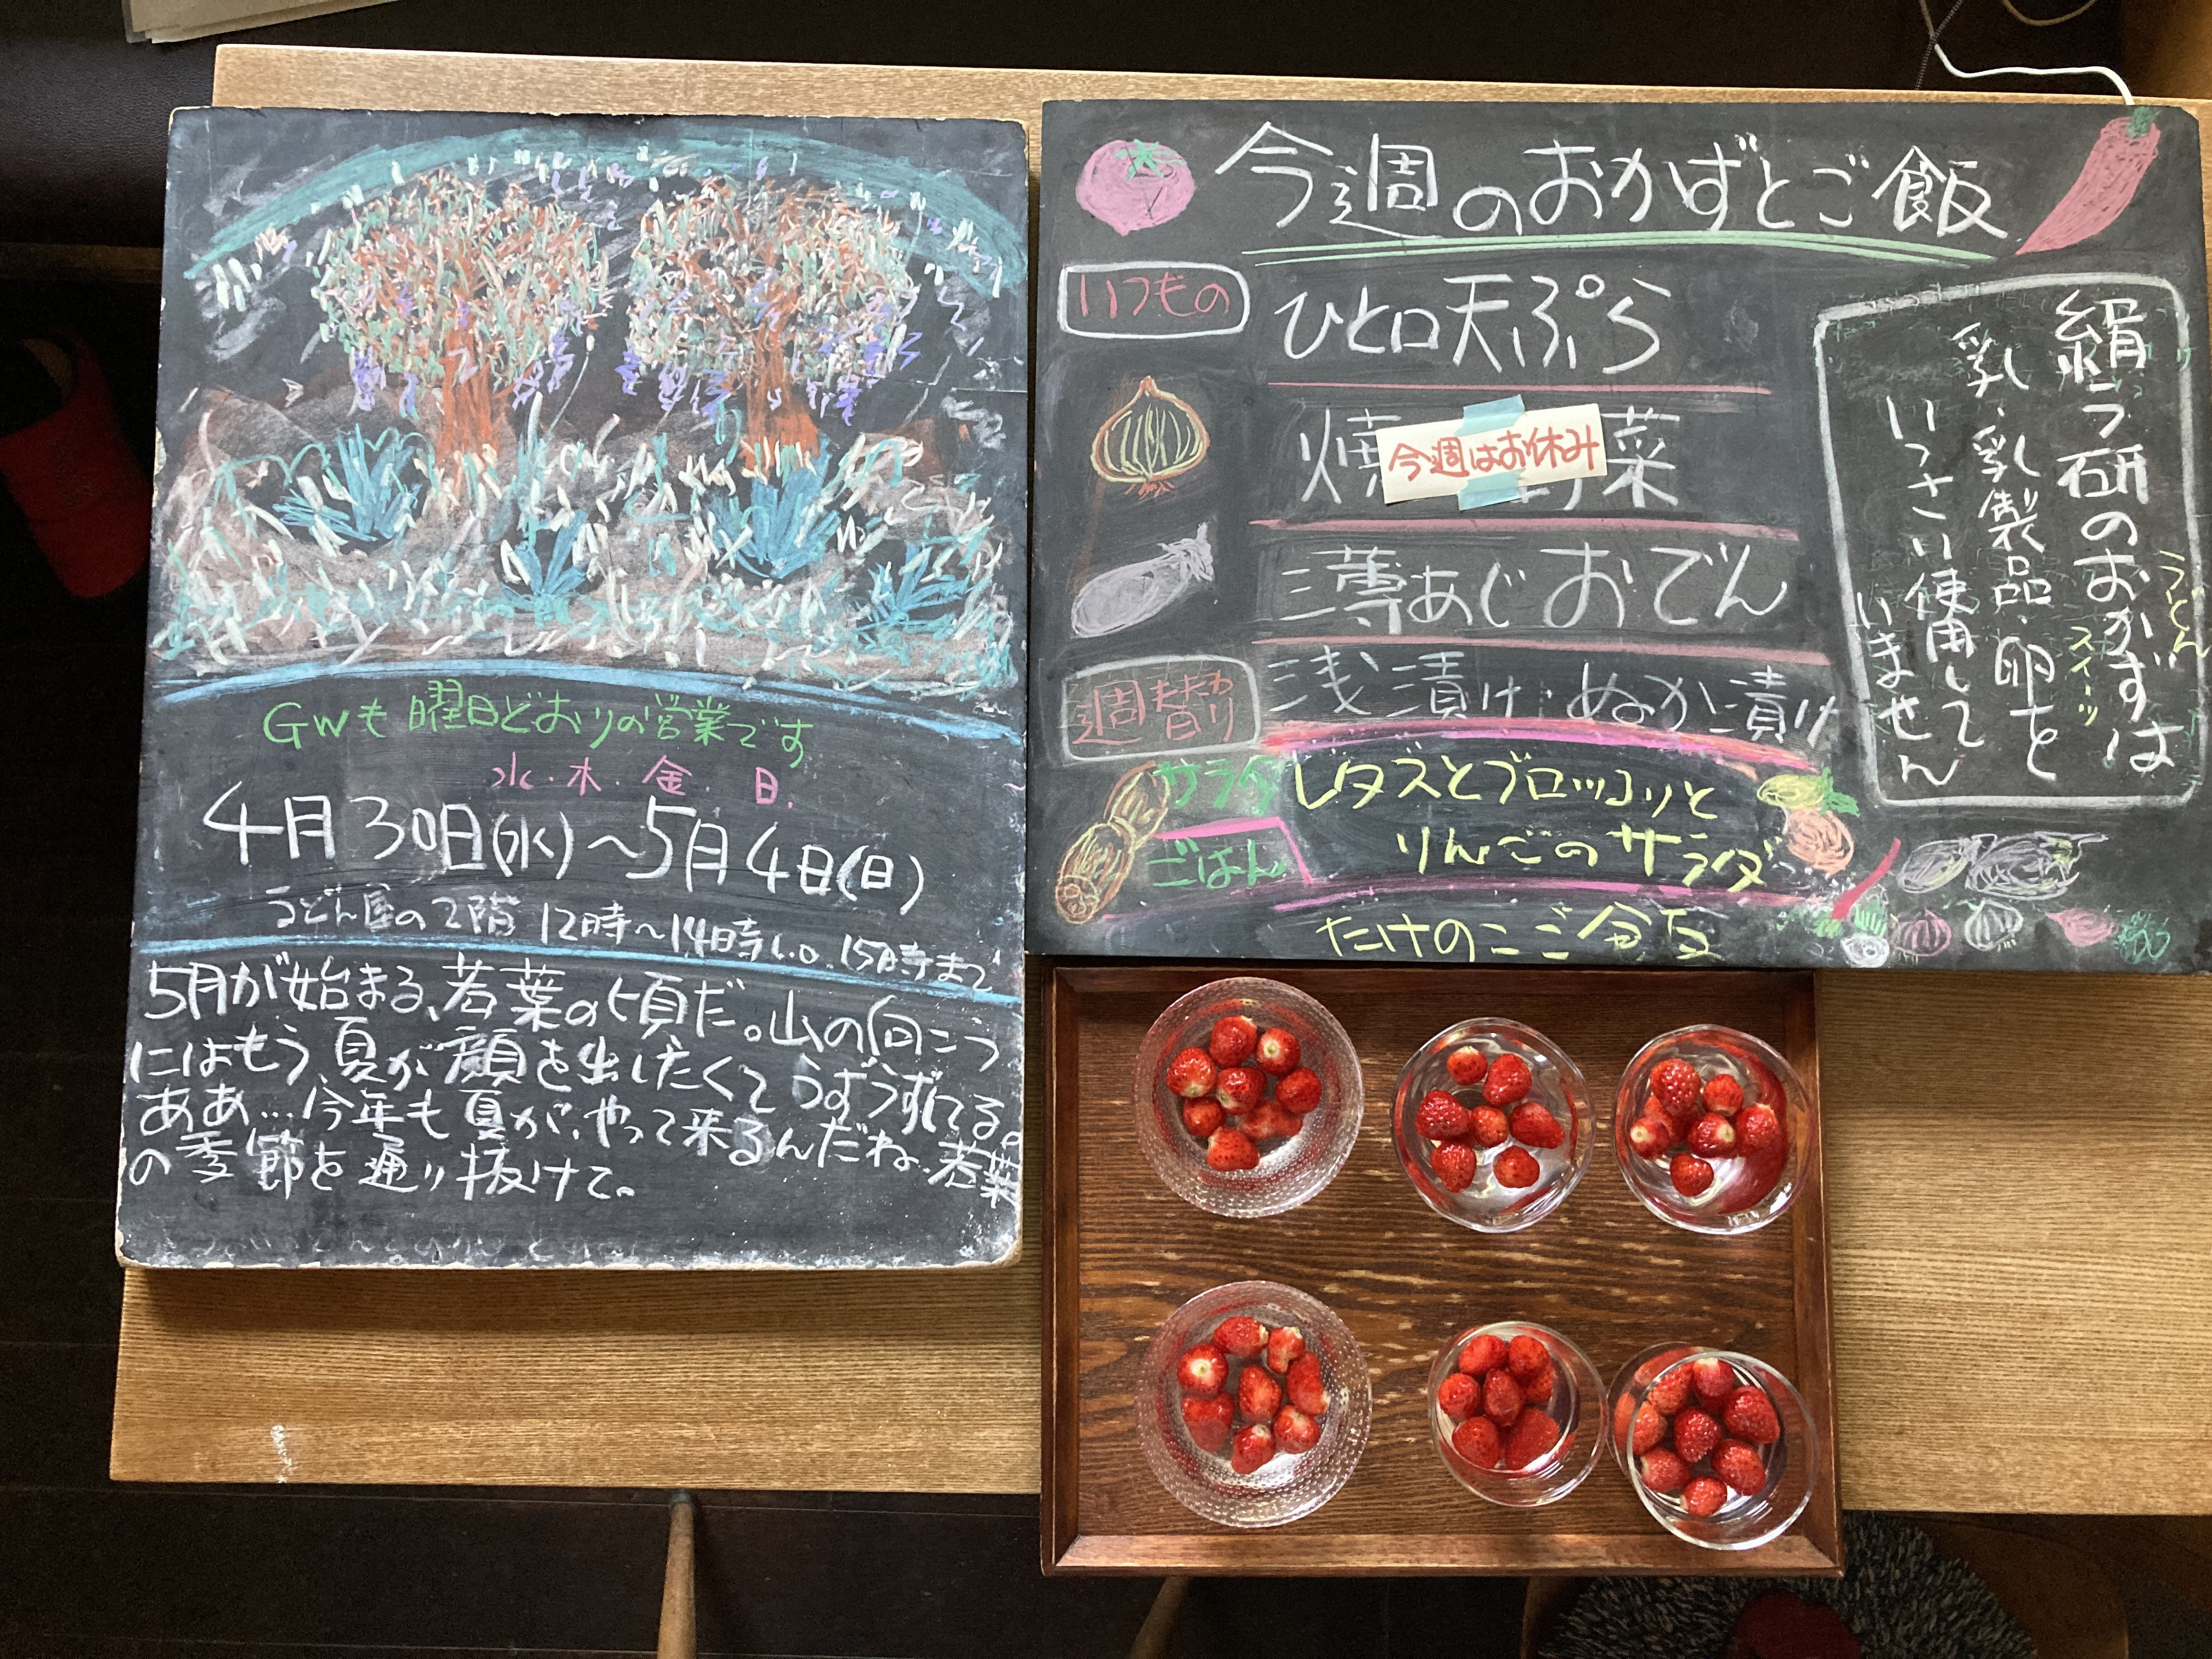 GWも曜日どおりの営業です
水・木・金・日.
4月30日(水)〜5月4日(日)
うどん屋の2階 12時〜14時L.O. 15時まで
5月が始まる、若葉の頃だ。山の向こう
にはもう、夏が顔を出したくてうずうずしてる。
ああ…今年も夏が、やって来るんだね、若葉
の季節を通り抜けて。
今週のおかずとご飯
いつもの
ひと口天ぷら
焼 菜
今週はお休み
薄あじおでん
週替わり
浅漬け・ぬか漬け
サラダ
レタスとブロッコリと
りんごのサラダ
ごはん
たけのこご飯
絹ラ研のおかずは
うどん
スイーツ
乳、乳製品、卵を
いっさい使用して
いません